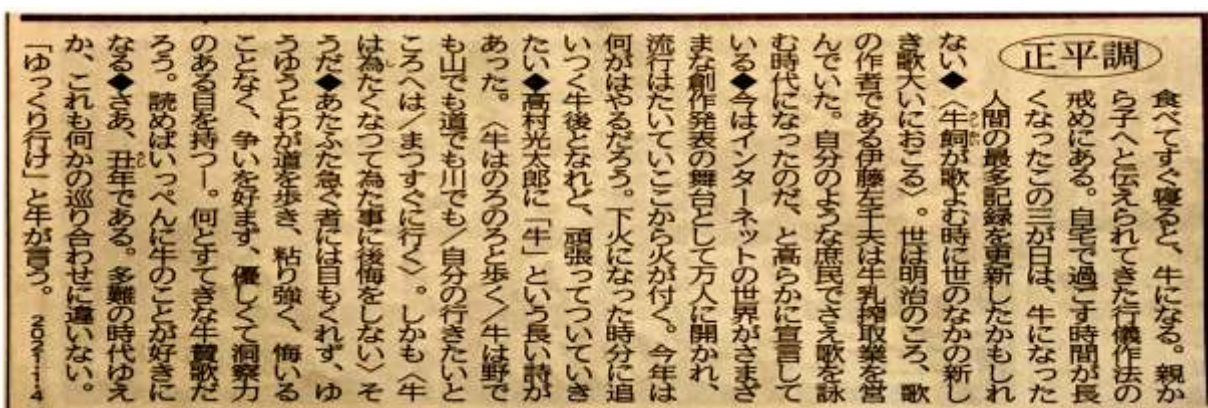 正平調
食べてすぐ寝ると、牛になる。親か
ら子へと伝えられてきた行儀作法の
戒めにある。自宅で過ごす時間が長
くなったこの三が日は、牛になった
人間の最多記録を更新したかもしれ
ない◆〈牛飼が歌よむ時に世のなかの新し
き歌大いにおこる〉。世は明治のころ、歌
の作者である伊藤左千夫は牛乳搾取業を営
んでいた。自分のような庶民でさえ歌を詠
む時代になったのだ、と高らかに宣言して
いる◆今はインターネットの世界がさまざ
まな創作発表の舞台として万人に開かれ、
流行はたいていここから火が付く。今年は
何がはやるだろう。下火になった時分に追
いつく牛後となれど、頑張ってついていき
たい◆高村光太郎に「牛」という長い詩が
あった。〈牛はのろのろと歩く/牛は野で
も山でも道でも川でも/自分の行きたいと
ころへは/まつすぐに行く〉。しかも〈牛
は為たくなつて為た事に後悔をしない〉そ
うだ◆あたふた急ぐ者には目もくれず、ゆ
うゆうとわが道を歩き、粘り強く、悔いる
ことなく、争いを好まず、優しくて洞察力
のある目を持つ―。何とすてきな牛賛歌だ
ろう。読めばいっぺんに牛のことが好きに
なる◆さあ、丑年である。多難の時代ゆえ
か、これも何かの巡り合わせに違いない。
「ゆっくり行け」と牛が言う。 2021・1・4